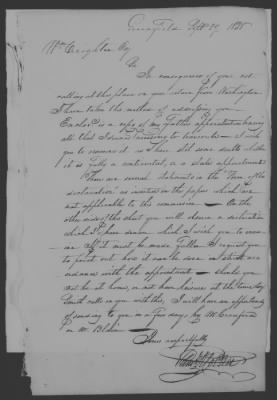 Greenfield Sept 29, 1835
Wm Creighton Esq
Sir
In consequence of your not
calling at this place on your return from Washington
I have taken the method of addressing you
Enclosed is a copy of my Fathers appointment having
all that I deemed necessary to transcribe — I wish
you to examine it as there did some doubt whether
it is really a continental, or a state appointment
There are several statements in the "Form of the
declaration" as inserted in the paper which are
not applicable to this
— On the
other side of this sheet you will observe a declaration
which I have drawn which I wish you to exam
ine If it must be made fuller I request you
to point out how it can be done in
ordance with the appointment — should you
not be at home, or not have leisure at the time
Smith calls on you with this, I will have an opportunity
of sending to you in a few days by Mr Crawford
or Mr Blair —
Yours respectfully